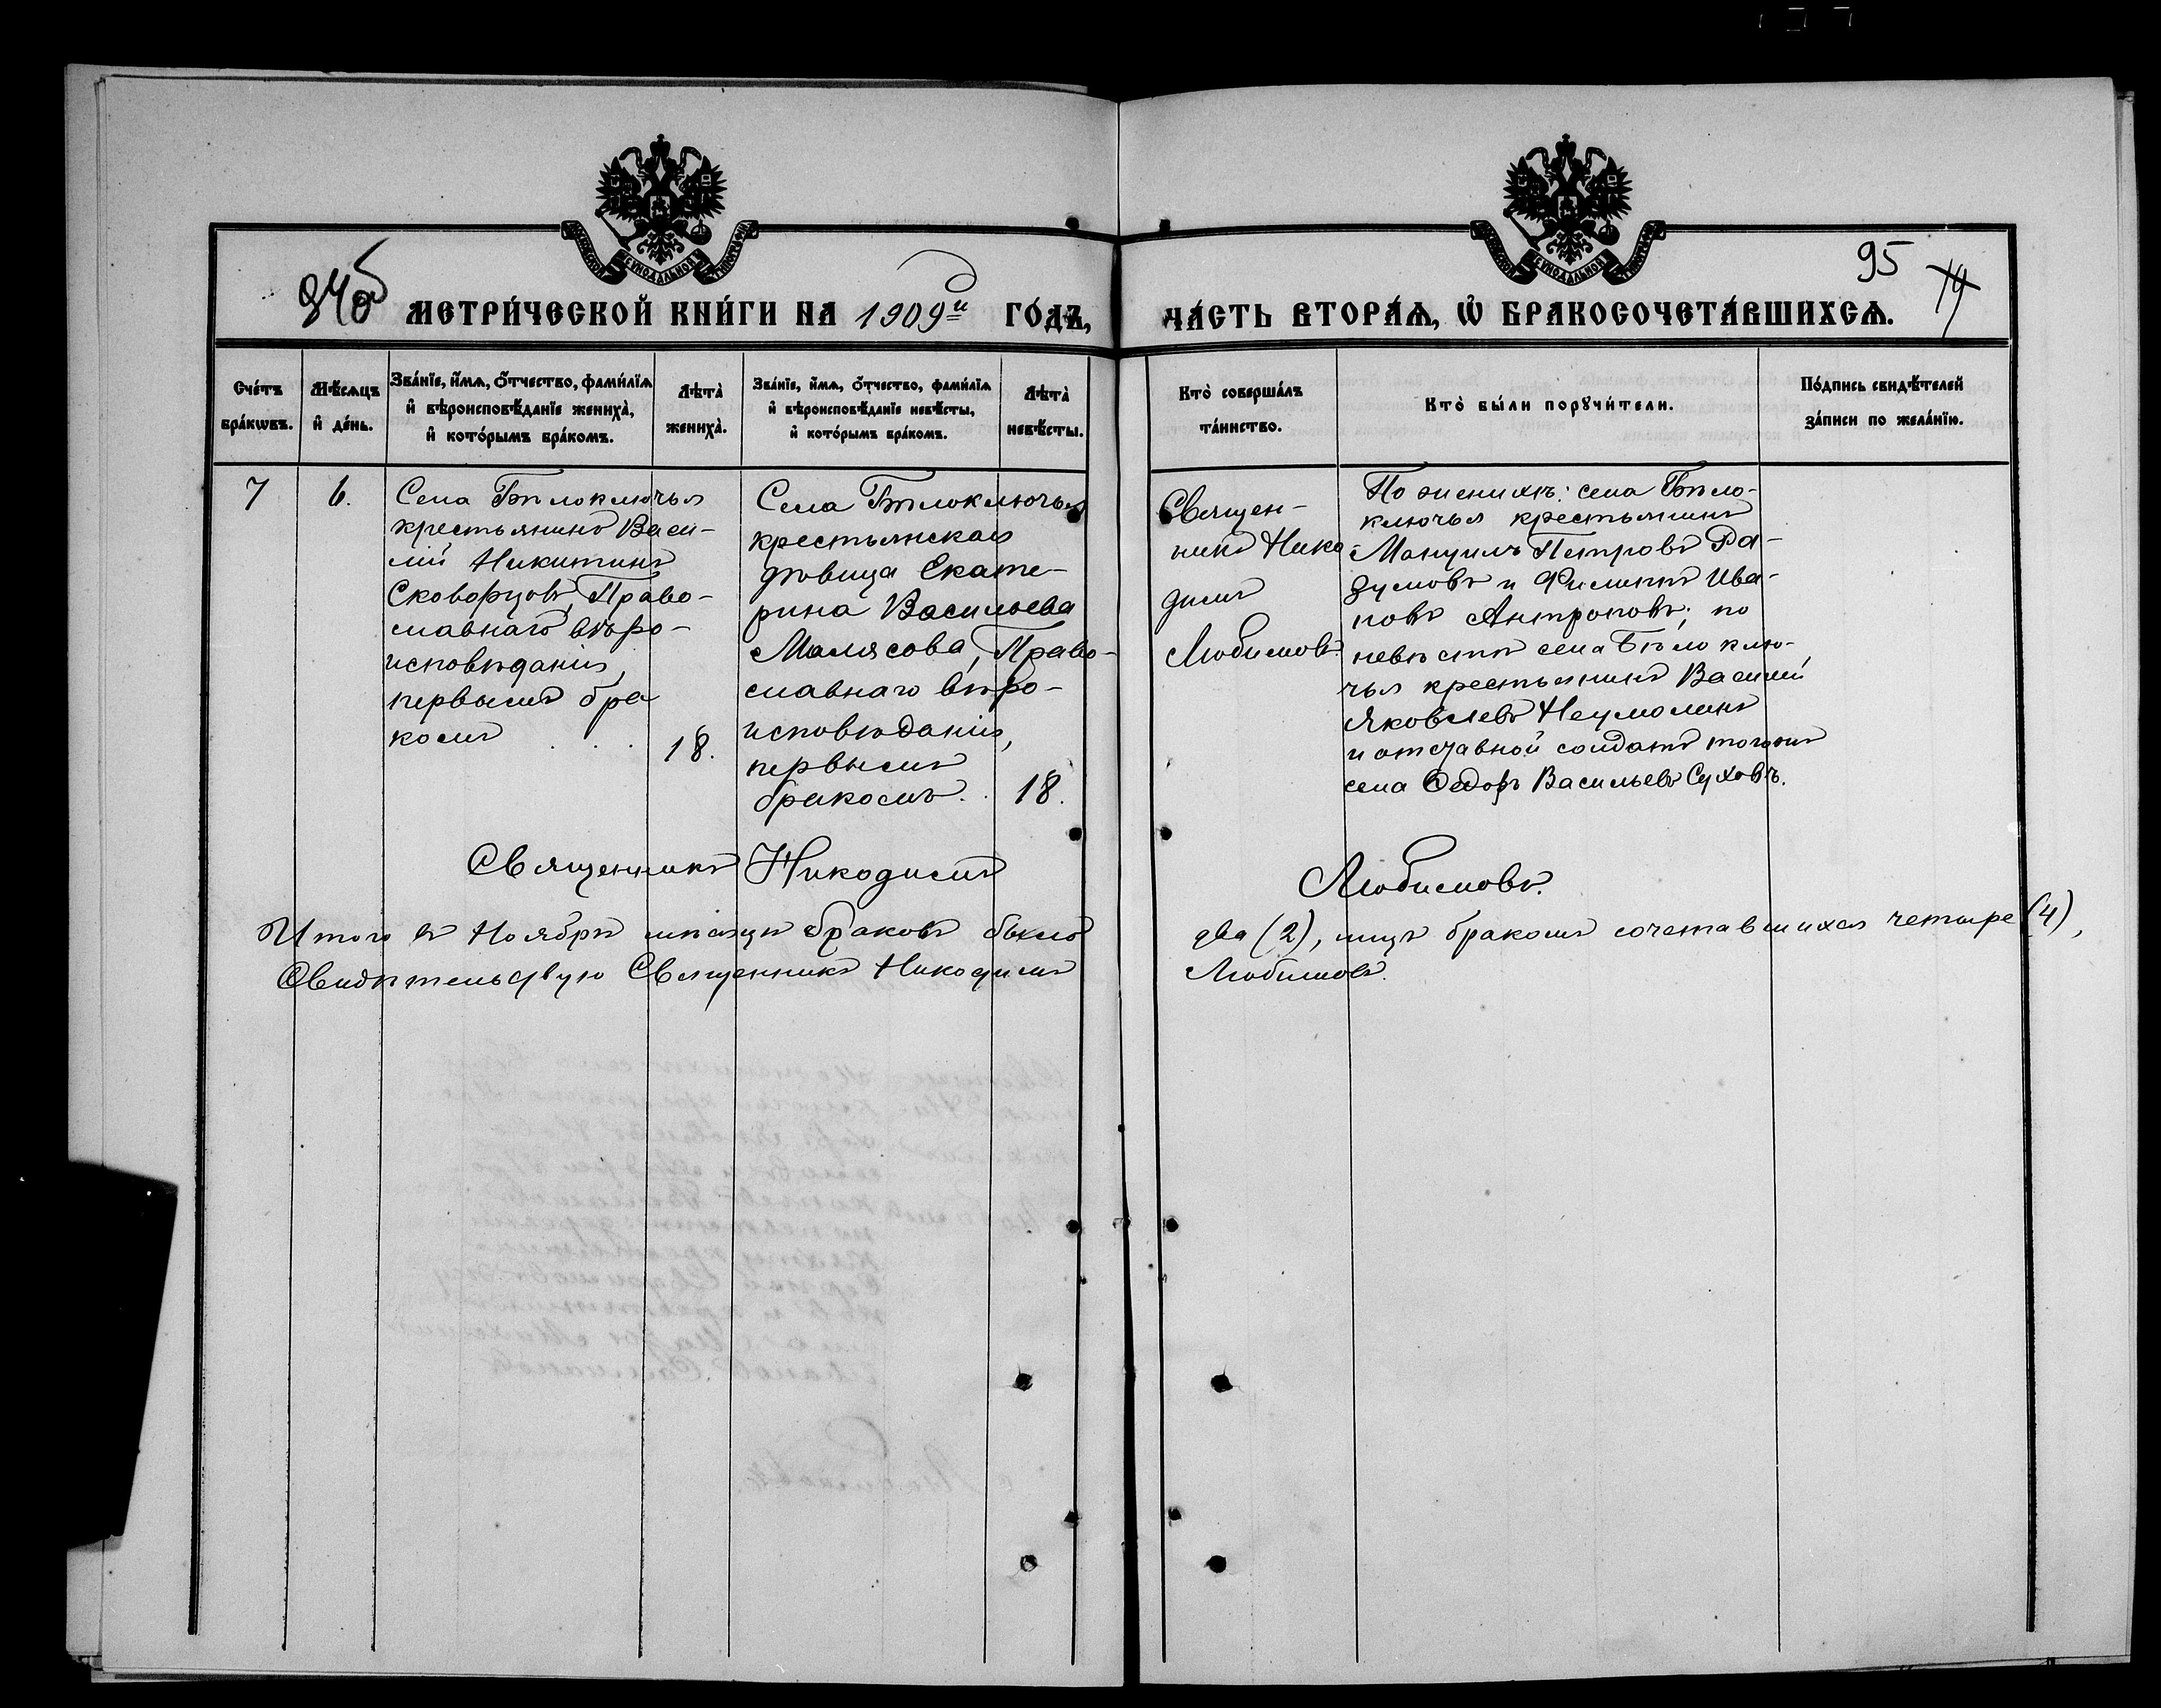 94об
МЕТРИ́ЧЕСКОЙ КНИ́ГИ НА 1909й ГО́ДЪ,
95
14
ЧА́СТЬ ВТОРА́Ѧ, Ѽ БРАКОСОЧЕТА́ВШИХСѦ.
Сче́тъ бра́кѡвъ.
Мѣ́сѧцъ и҆ де́нь.
Зва́нїе, и҆́мѧ, ѻ҆́тчество, фами́лїѧ
и҆ вѣроисповѣ́данїе жениха̀,
и҆ кото́рымъ бра́комъ.
Лѣта̀
жениха̀.
Зва́нїе, и҆́мѧ, ѻ҆́тчество, фами́лїѧ
и҆ вѣроисповѣ́данїе невѣ́сты,
и҆ кото́рымъ бра́комъ.
Лѣта̀
невѣ́сты.
Кто̀ соверша́лъ
та́инство.
Кто̀ бы́ли порꙋчи́тели.
По́дпись свидѣ́телей
за́писи по жела́нїю.
7
6.
Села Бѣлоключья
крестьянинъ Васи-
лій Никитинъ
Скворцовъ, Право-
славнаго вѣро-
исповѣданія,
первымъ бра
комъ . . .
18.
Села Бѣлоключья
крестьянская
дѣвица Екате-
рина Васильева
Малясова, Право-
славнаго вѣро-
исповѣданія,
первымъ
бракомъ. .
18.
Священ-
никъ Нико-
димъ
Любимовъ.
По женихѣ: села Бѣло-
ключья крестьянинъ
Мануилъ Петровъ Ра-
зумовъ и Филиппъ Ива-
новъ Антроповъ; по
невѣстѣ села Бѣлоклю-
чья крестьянинъ Василій
Яковлевъ Неумолинъ
и отставной солдатъ тогоже
села Ѳедоръ Васильевъ Суховъ.
Священникъ Никодимъ Любимовъ.
Итого въ Ноябрѣ мѣсяцѣ браковъ было два (2), лицъ бракомъ сочетавшихся четыре (4),
Свидѣтельствую Священникъ Никодимъ Любимовъ.